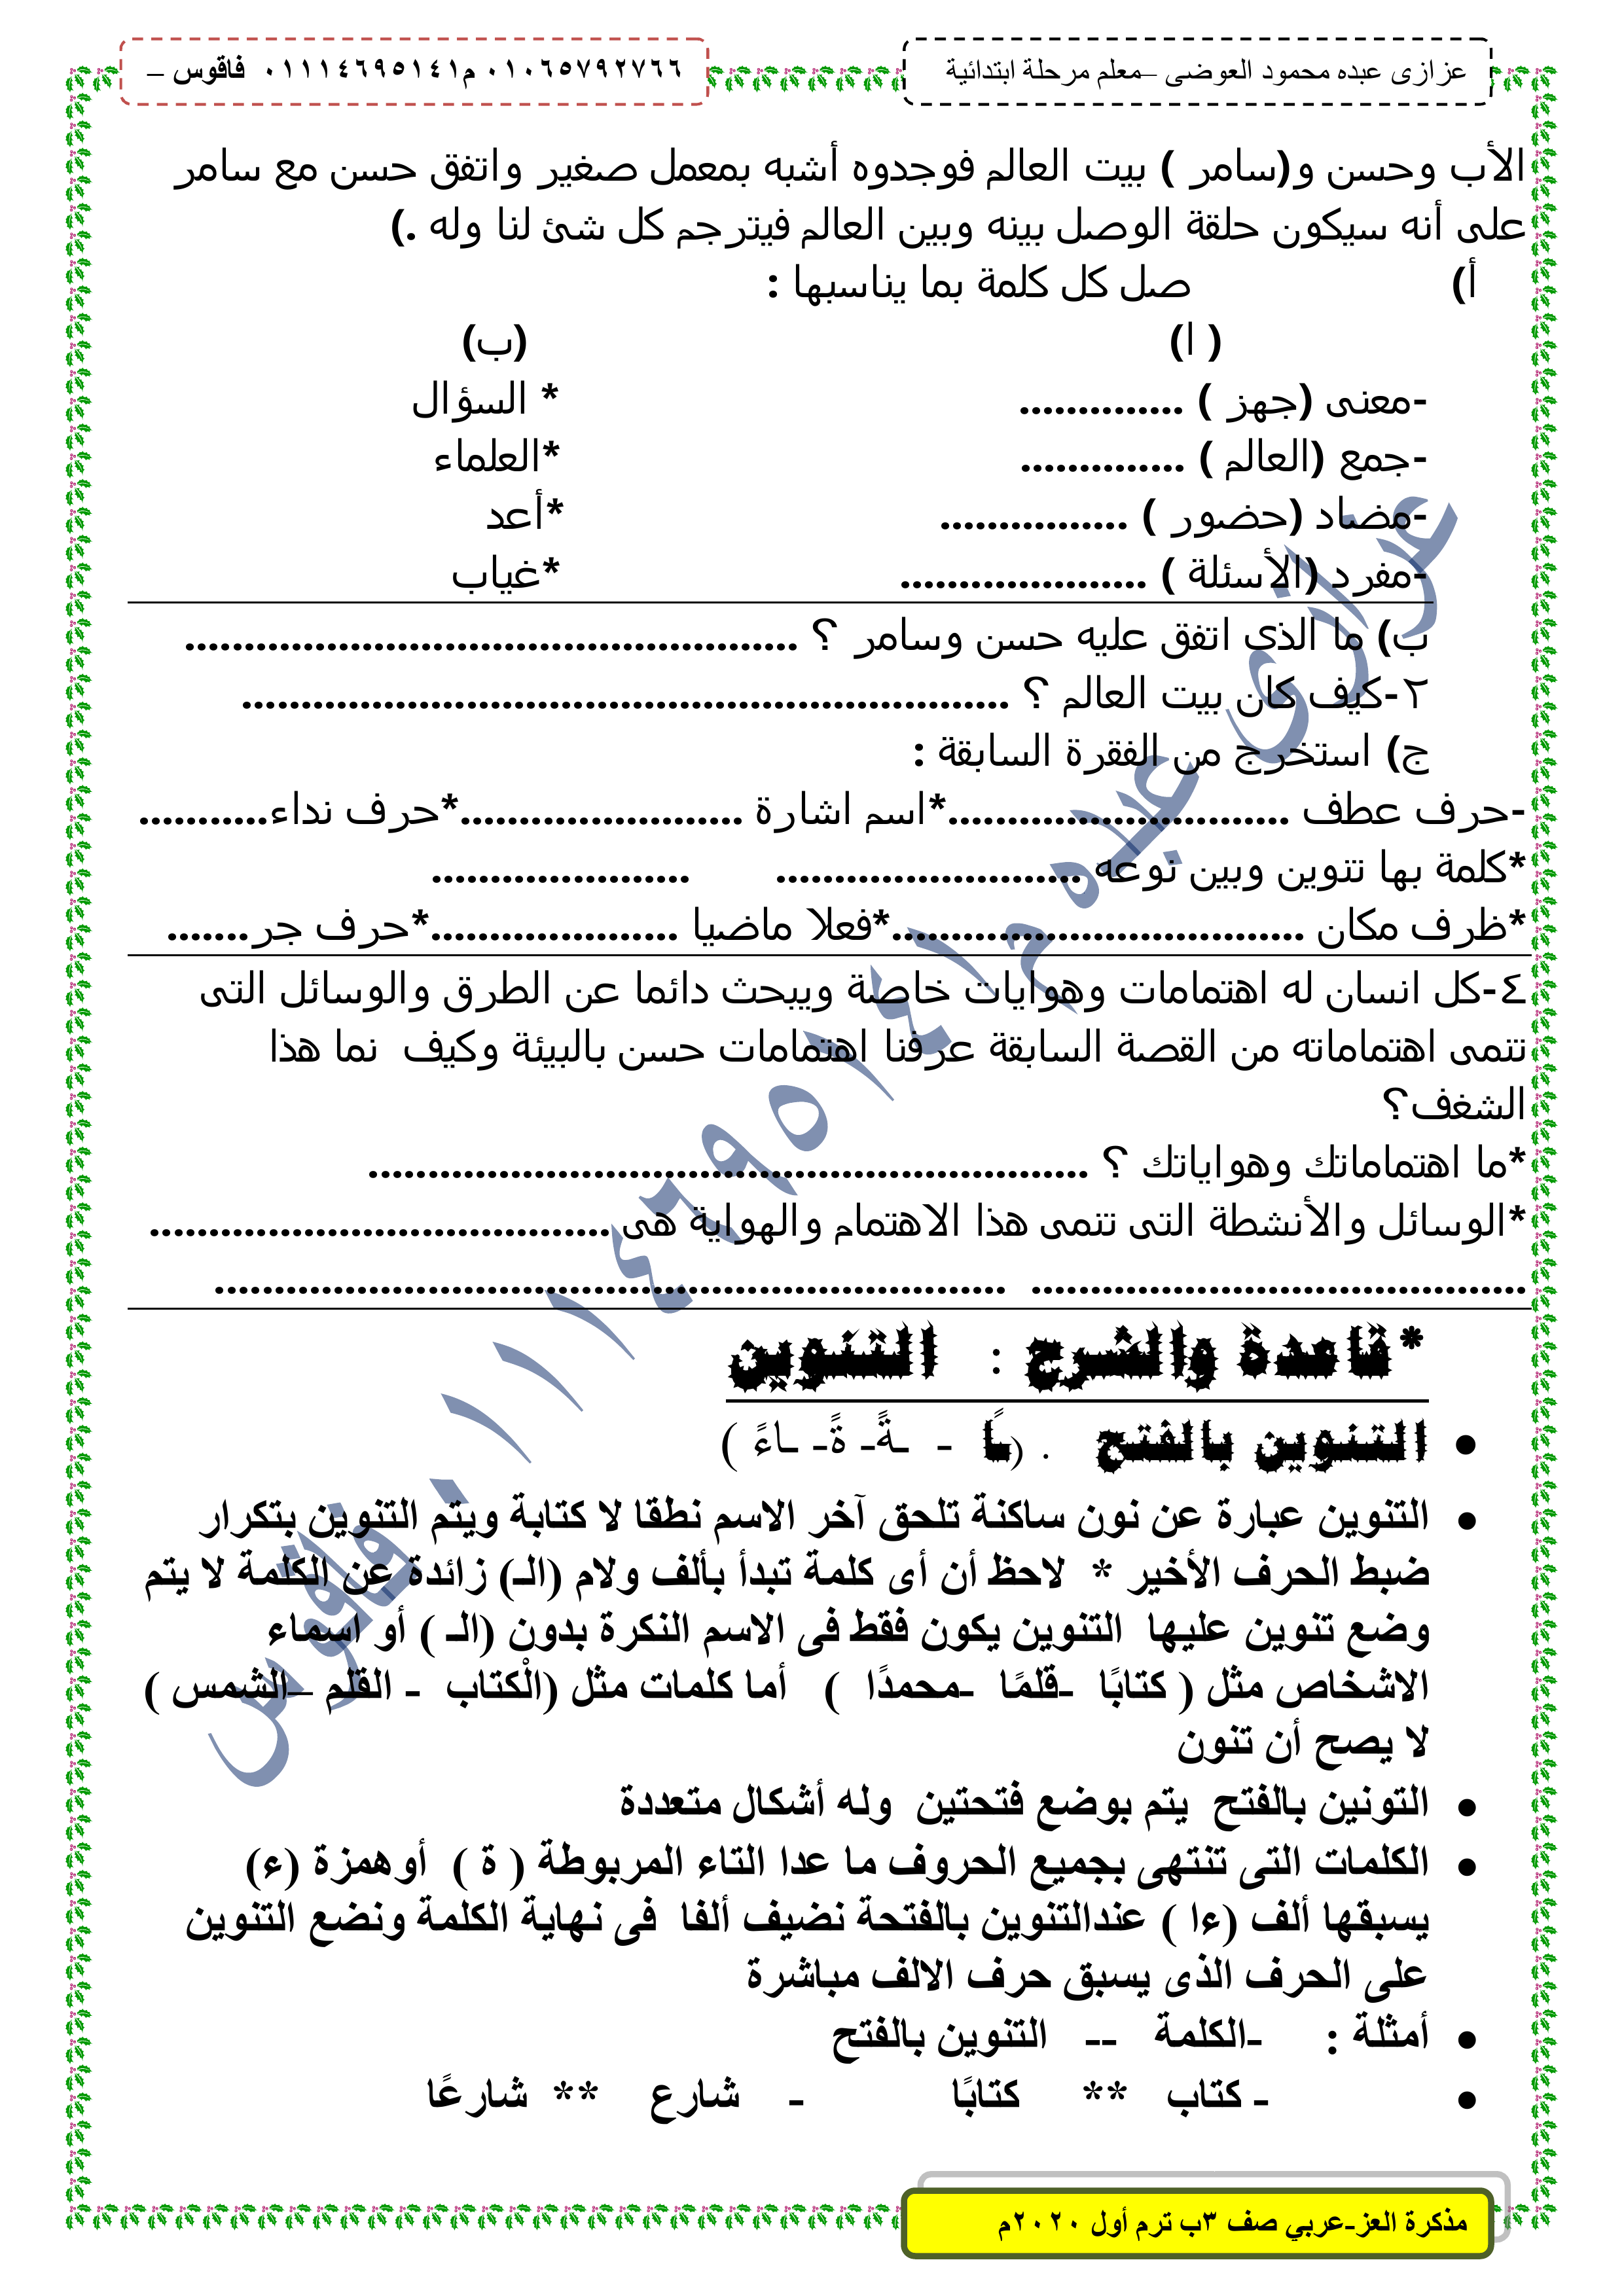 عزازى عبده محمود العوضى –معلم مرحلة ابتدائية
٠١٠٦٥٧٩٢٧٦٦ م٠١١١٤٦٩٥١٤١ فاقوس –
الأب وحسن و(سامر ) بيت العالم فوجدوه أشبه بمعمل صغير واتفق حسن مع سامر
على أنه سيكون حلقة الوصل بينه وبين العالم فيترجم كل شئ لنا وله .)
أ) صل كل كلمة بما يناسبها :
( ا) (ب)
-معنى (جهز ) .............. * السؤال
-جمع (العالم ) .............. *العلماء
-مضاد (حضور ) ................ *أعد
-مفرد (الأسئلة ) ..................... *غياب
ب) ما الذى اتفق عليه حسن وسامر ؟ ....................................................
٢-كيف كان بيت العالم ؟ .................................................................
ج) استخرج من الفقرة السابقة :
-حرف عطف .............................*اسم اشارة ........................*حرف نداء...........
*كلمة بها تنوين وبين نوعه .......................... ......................
*ظرف مكان ...................................*فعلا ماضيا .....................*حرف جر.......
٤-كل انسان له اهتمامات وهوايات خاصة ويبحث دائما عن الطرق والوسائل التى
تنمى اهتماماته من القصة السابقة عرفنا اهتمامات حسن بالبيئة وكيف نما هذا
الشغف؟
*ما اهتماماتك وهواياتك ؟ .............................................................
*الوسائل والأنشطة التى تنمى هذا الاهتمام والهواية هى .......................................
.......................................... ...................................................................
*قاعدة والشرح : التنوين
التنوين بالفتح . (ـًا - ـةً- ةً- ـاءً )
التنوين عبارة عن نون ساكنة تلحق آخر الاسم نطقا لا كتابة ويتم التنوين بتكرار
ضبط الحرف الأخير * لاحظ أن أى كلمة تبدأ بألف ولام (الـ) زائدة عن الكلمة لا يتم
وضع تنوين عليها التنوين يكون فقط فى الاسم النكرة بدون (الـ ) أو اسماء
الاشخاص مثل ( كتابًا -قلمًا -محمدًا ) أما كلمات مثل (الْكتاب - القلم –الشمس )
لا يصح أن تنون
التونين بالفتح يتم بوضع فتحتين وله أشكال متعددة
الكلمات التى تنتهى بجميع الحروف ما عدا التاء المربوطة ( ة ) أوهمزة (ء)
يسبقها ألف (ءا ) عندالتنوين بالفتحة نضيف ألفا فى نهاية الكلمة ونضع التنوين
على الحرف الذى يسبق حرف الالف مباشرة
أمثلة : -الكلمة -- التنوين بالفتح
- كتاب ** كتابًا - شارع ** شارعًا
عزازى عبده م٠١١١٤٦٩٥١٤١ فاقوس
مذكرة العز-عربي صف ٣ب ترم أول ٢٠٢٠م